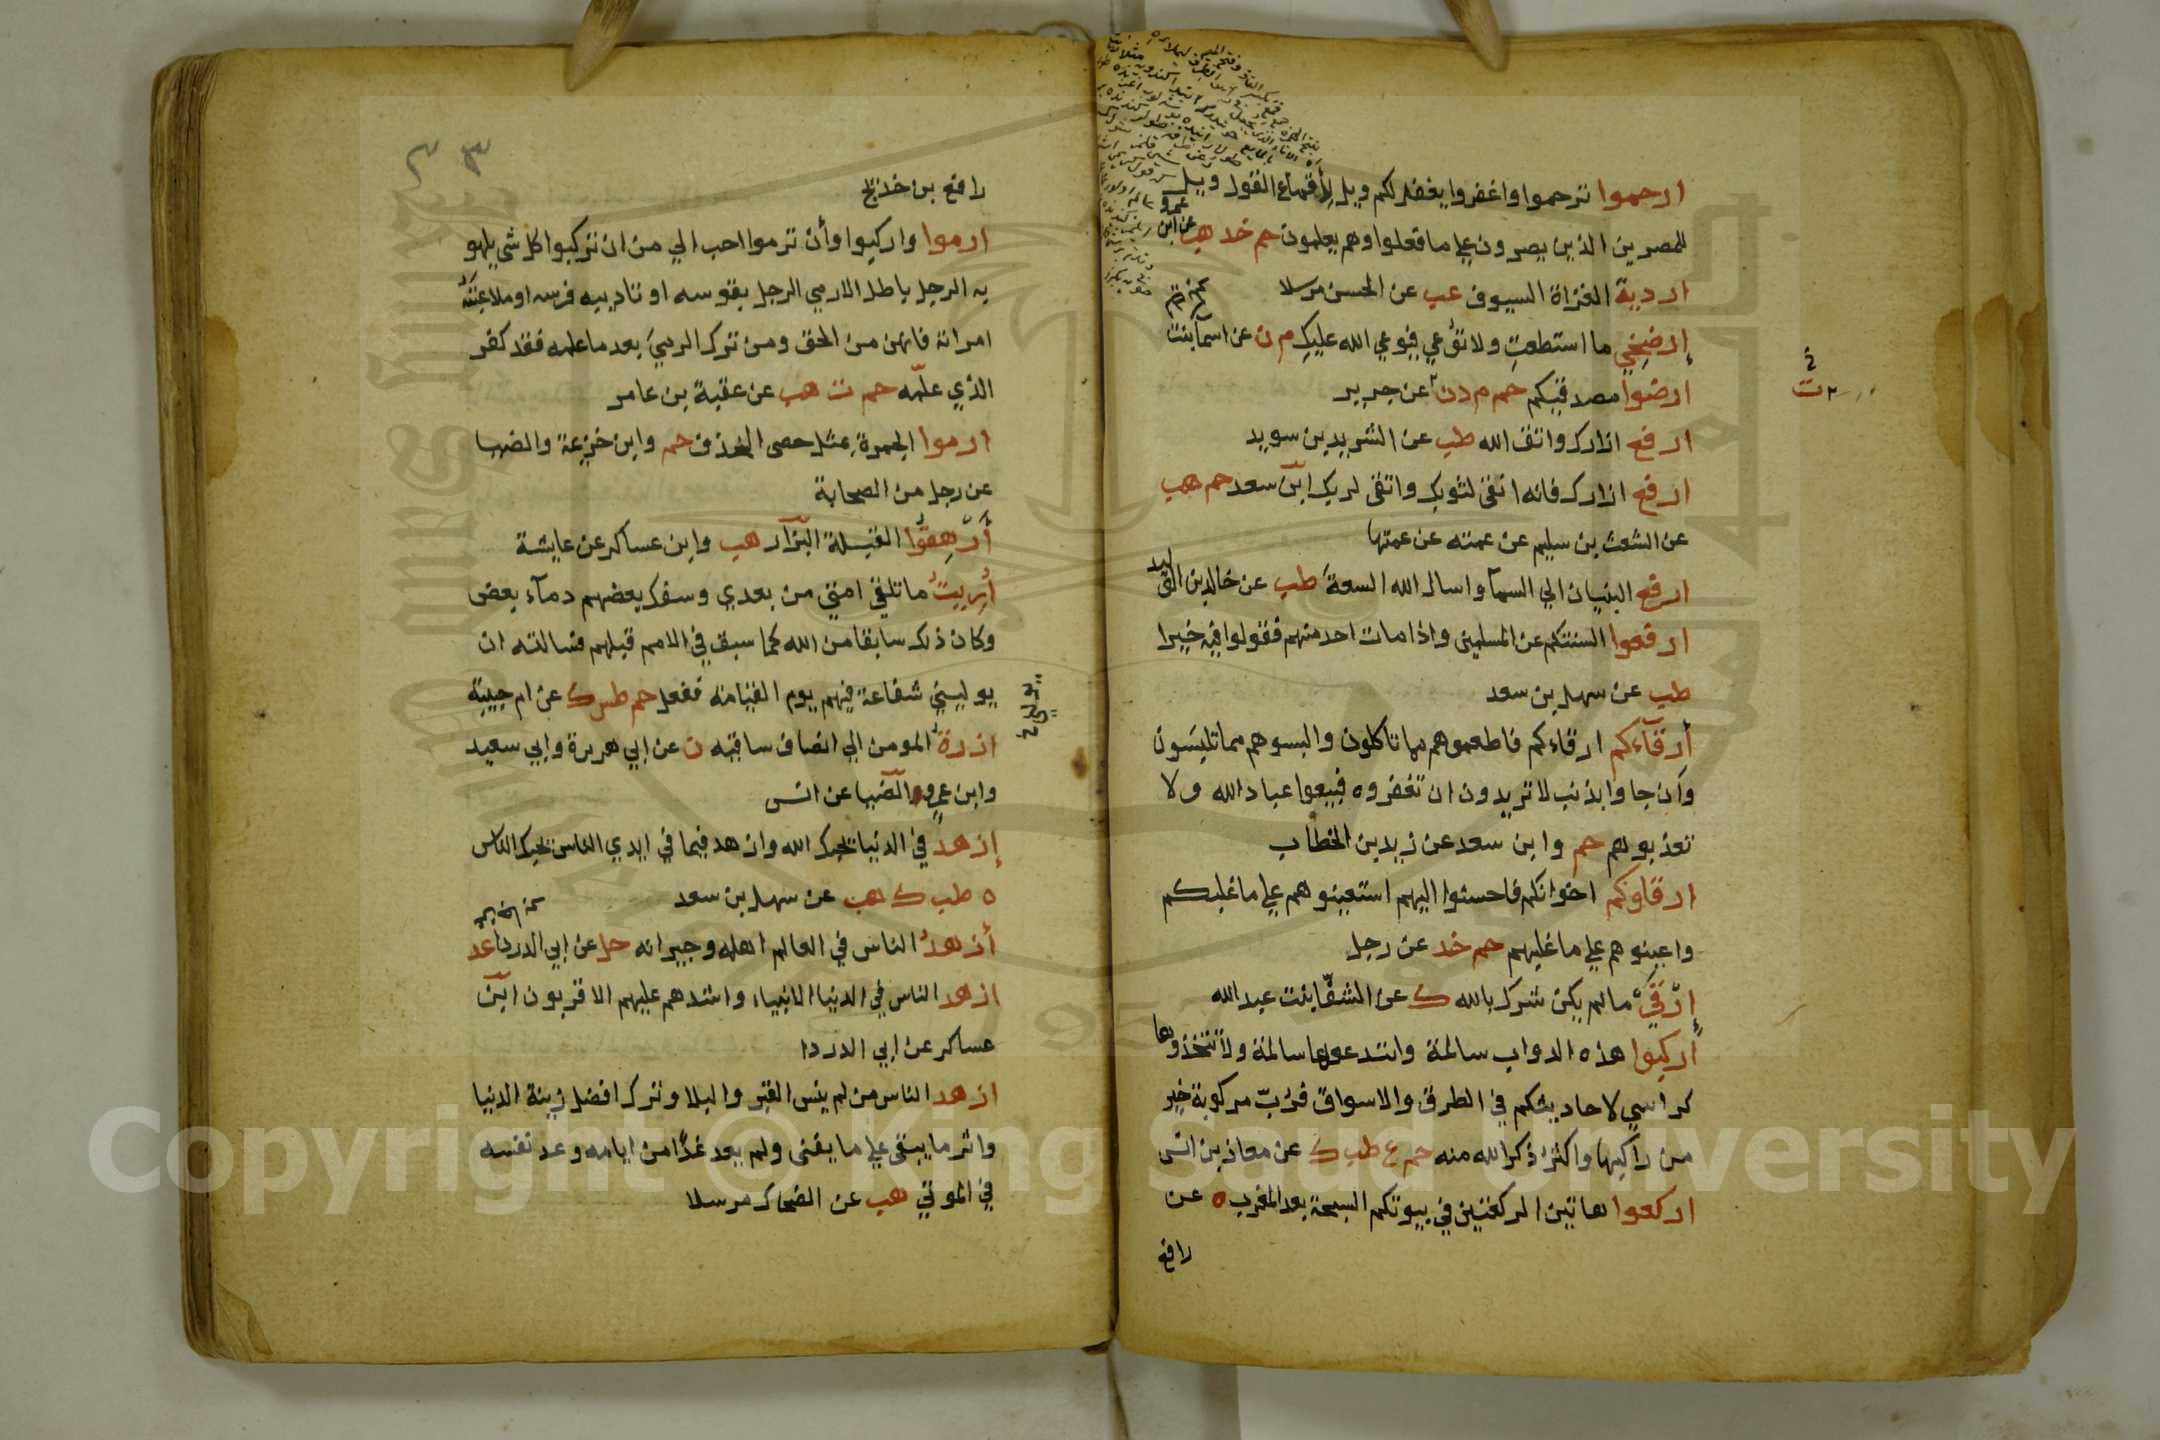 ارحموا ترحموا واغفروا يغفر لكم ويل لأقماع القول ويل
للمصرين الذين يصرون علي ما فعلوا وهم يعلمون حم خد هب عن ابن عمرو
اردية الغزاة السيوف عب عن الحسن مرسلا
إرضخي ما استطعتِ ولا توعي فيوعي الله عليكِ م ن عن اسما بنت
ارضوا مصدقيكم حم م د ن عن جرير
ارفع ازارك واتق الله طب عن الشريد بن سويد
ارفع ازارك فانه انقى لثوبك واتقى لربك ابن سعد حم هب
عن الشعث بن سليم عن عمته عن عمتها
ارفع البنيان الي السمآ واسال الله السعة طب عن خالد بن الوليد
ارفعوا السنتكم عن المسلمين واذا مات احد منهم فقولوا فيه خيرا
طب عن سهل بن سعد
أرقآءكم ارقاءكم فاطعموهم مما تاكلون والبسوهم مما تلبسون
وان جاوا بذنب لا تريدون ان تغفروه فبيعوا عباد الله ولا
تعذبوهم حم وابن سعد عن زيد بن الخطاب
ارقاوكم اخوانكم فاحسنوا اليهم استعينوهم علي ما غلبكم
واعينوهم علي ما غلبهم حم خد عن رجل
إرقي ما لم يكن شرك بالله ك عن الشفا بنت عبد الله
أركبوا هذه الدواب سالمة وابتدعوها سالمة ولا تتخذوها
كراسي لاحاديثكم في الطرق والاسواق فربّ مركوبة خير
من راكبها واكثر ذكرا لله منه حم ع طب ك عن معاذ بن انس
اركعوا هاتين الركعتين في بيوتكم السبحة بعد المغرب ه عن
رافع
٢٣
رافع بن خديج
ارموا واركبوا وأن ترموا احب الي من ان تركبوا كل شي يلهو
به الرجل باطل الا رمي الرجل بقوسه او تاديبه فرسه او ملاعبته
امراته فانهن من الحق ومن ترك الرمي بعد ما علمه فقد كفر
الذي علّمه حم ت هب عن عقبة بن عامر
ارموا الجمرة بمثل حصى الخذف حم وابن خزيمة والضيا
عن رجل من الصحابة
أَرْهِقوُا القبلة البزّآر هب وابن عساكر عن عايشة
أُرِيتُ ما تلقي امتي من بعدي وسفك بعضهم دمآء بعض
وكان ذلك سابقا من الله كما سبق في الامم قبلهم فسالته ان
يوليني شفاعة فيهم يوم القيامة ففعل حم طس ك عن ام حبيبة
ازرة المومن الي انصاف ساقيه ن عن ابي هريرة وابي سعيد
وابن عمر والضيا عن انس
إزهد في الدنيا يحبك الله وازهد فيما في ايدي الناس يحبك الناس
ه طب ك هب عن سهل بن سعد
أزهدُ الناس في العالم اهله وجيرانه حل عن ابي الدرداء عد
ازهد الناس في الدنيا الانبياء واشدهم عليهم الاقربون ابن
عساكر عن ابي الدردا
ازهد الناس من لم ينس القبر والبلا وترك افضل زينة الدنيا
واثر ما يبقى علي ما يفنى ولم يعد غدًا من ايامه وعد نفسه
في الموتي هب عن الضحاك مرسلا
Copyright © King Saud University
1957